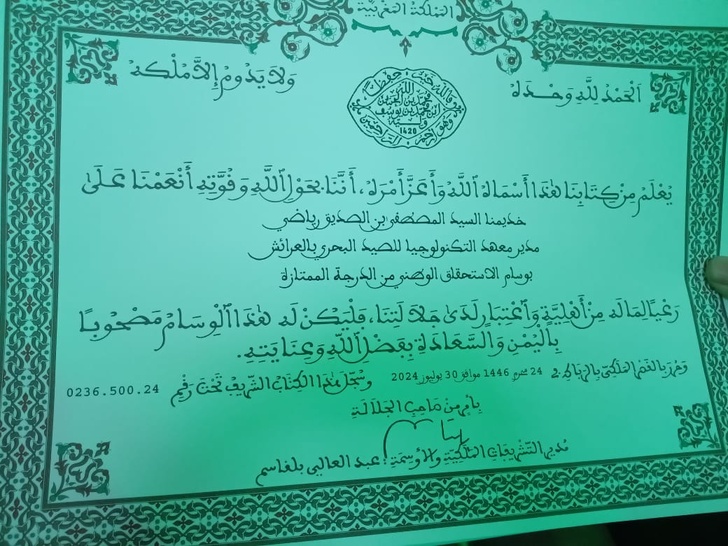 المملكة المغربية
الحمد لله وحده
ولا يدوم إلا ملكه
1420
يعلم من كتابنا هذا أسماه الله وأعز أمره، أننا بحول الله وقوته أنعمنا على
خديمنا السيد المصطفى بن الصديق رياضي
مدير معهد التكنولوجيا للصيد البحري بالعرائش
بوسام الاستحقاق الوطني من الدرجة الممتازة
رعيا لما له من أهلية واعتبار لدى جلالتنا، فليكن له هذا الوسام مصحوبا
باليمن والسعادة بفضل الله وعنايته.
وحرر بالقصر الملكي بالرباط في 24 محرم 1446 موافق 30 يوليوز 2024 وسجل هذا الكتاب الشريف تحت رقم 0236.500.24
بأمر من صاحب الجلالة
مدير التشريفات الملكية والأوسمة: عبد العالي بلقاسم